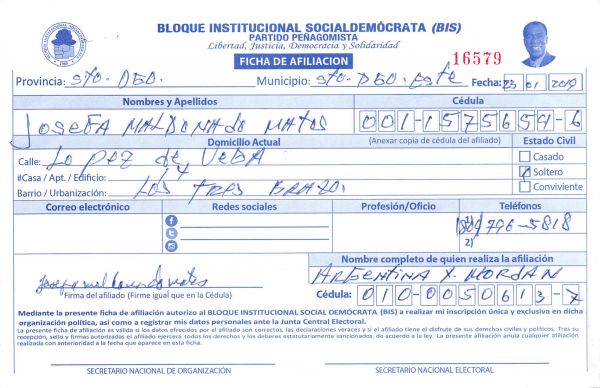 BLOQUE INSTITUCIONAL SOCIALDEMÓCRATA (BIS)
PARTIDO PEÑAGOMISTA
Libertad, Justicia, Democracia y Solidaridad
FICHA DE AFILIACION
16579
Provincia: Sto-DGO. Municipio: Sto-DGO. Este Fecha: 23 01 2019
Nombres y Apellidos Cédula
JOSEFA MALDONADO MATOS 001-1575659-6
Domicilio Actual (Anexar copia de cédula del afiliado) Estado Civil
Calle: Lopez de VeGA Casado
#Casa / Apt. / Edificio: 14 Soltero
Barrio / Urbanización: LOS TRES BRAZO. Conviviente
Correo electrónico Redes sociales Profesión/Oficio Teléfonos
1) 796-5818
2)
Nombre completo de quien realiza la afiliación
ARGENTINA X. MORDAN
Firma del afiliado (Firme igual que en la Cédula) Cédula: 010-0050613-7
Mediante la presente ficha de afiliación autorizo al BLOQUE INSTITUCIONAL SOCIAL DEMÓCRATA (BIS) a realizar mi inscripción única y exclusiva en dicha
organización política, así como a registrar mis datos personales ante la Junta Central Electoral.
La presente ficha de afiliación es válida si los datos ofrecidos por el afiliado son correctos, las declaraciones veraces y si el afiliado tiene el disfrute de sus derechos civiles y políticos. Tras su
recepción, sello y firmas autorizadas el afiliado ejercerá todos los derechos y los deberes estatutariamente sancionados, de acuerdo a la ley. La presente afiliación anula cualquier afiliación
realizada con anterioridad a la fecha que aparece en esta ficha.
SECRETARIO NACIONAL DE ORGANIZACIÓN SECRETARIO NACIONAL ELECTORAL